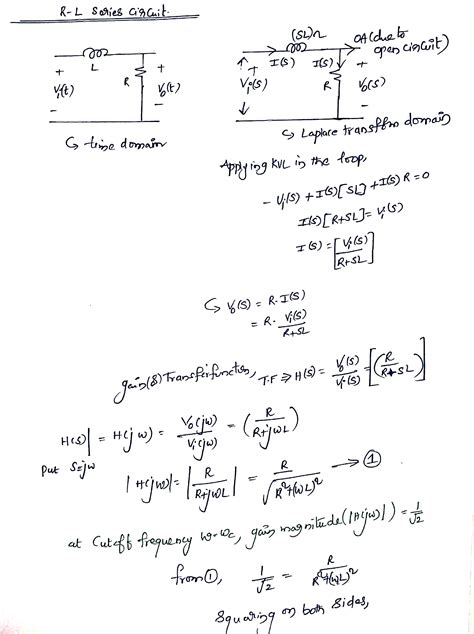 R-L Series Circuit.
(SL)Ω
0A(due to
open circuit)
L
I(S)
I(S)
+
Vi(t)
-
R
+
V0(t)
-
+
Vi(S)
-
R
+
V0(S)
-
↳ time domain
↳ Laplace transffrm domain
Applying KVL in the loop,
- Vi(S) + I(S)[SL] + I(S) R = 0
I(S)[R+SL] = Vi(S)
I(S) = [Vi(S)/R+SL]
↳ V0(S) = R. I(S)
= R. Vi(S)/R+SL
gain(8) Transferfunction, T.F ⇒ H(S) = V0(S)/Vi(S) = [(R/R+SL)]
H(S)| = H(jω) = V0(jω)/Vi(jω) = (R/R+jωL)
put S=jω
|H(jω)| = |R/R+jωL| = R/√R²+(ωL)² → ①
at Cutoff frequency ω=ωc, gain magnitude(|H(jω)|) = 1/√2
from ①, 1/√2 = R/R²+(ωL)²
Squaring on both Sides,